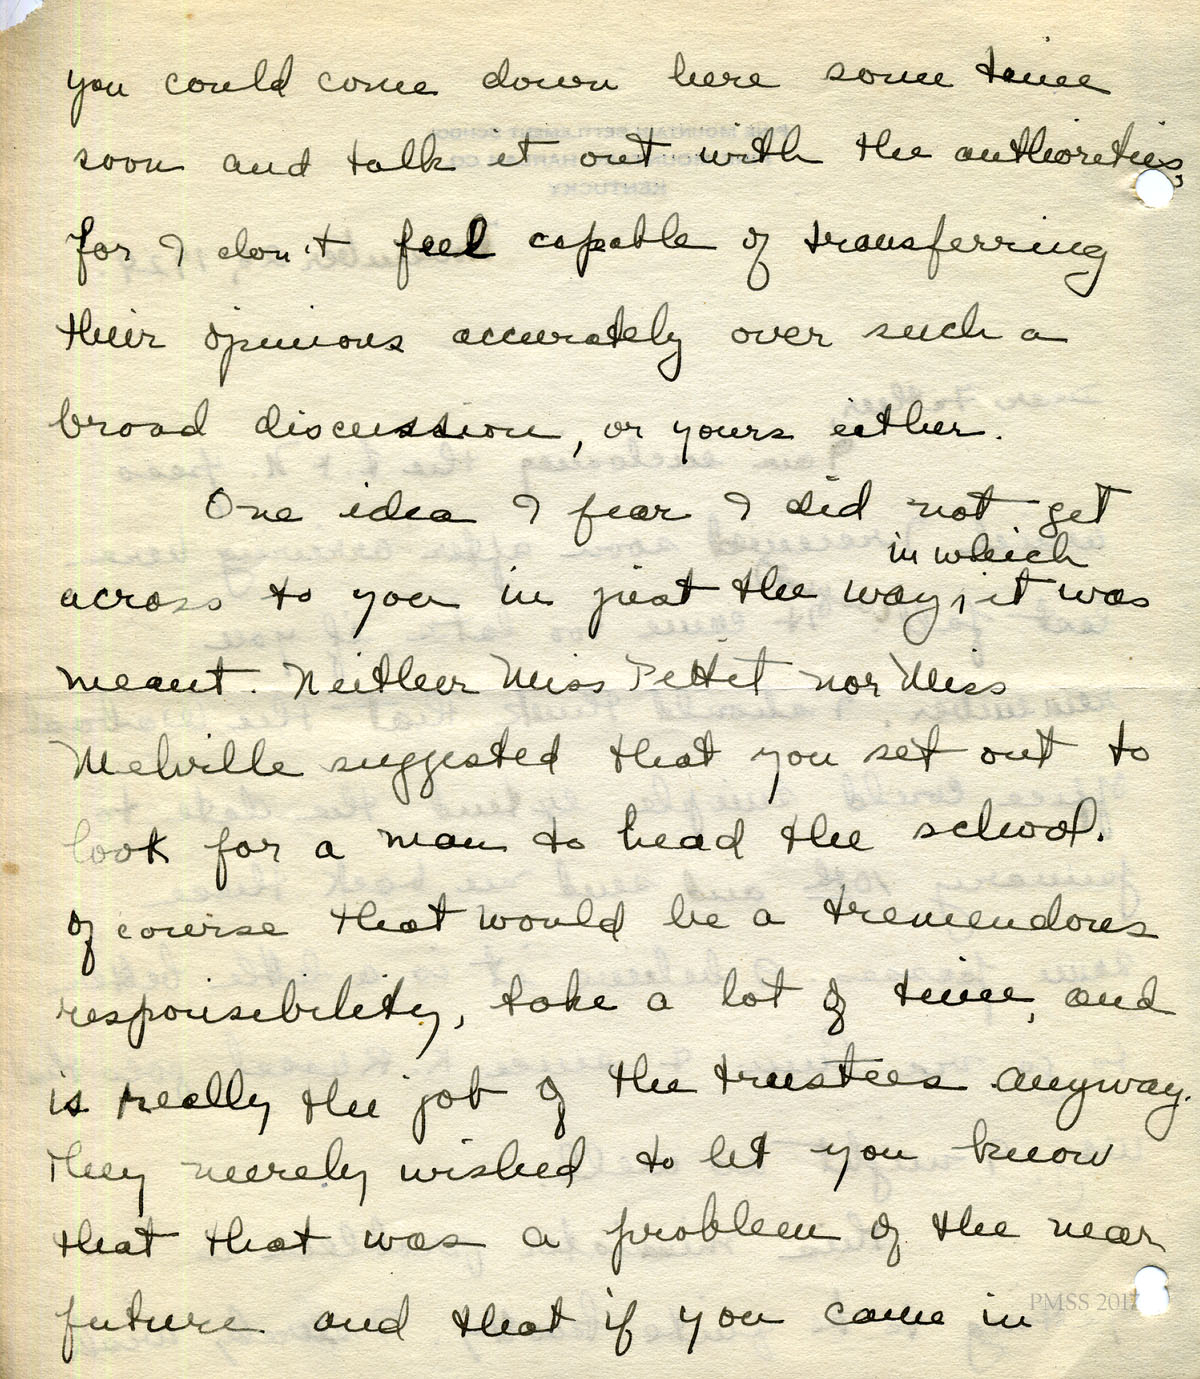 you could come down here some time
soon and talk it out with the authorities,
for I don't feel capable of transferring
their opinions accurately over such a
broad discussion, or yours either.
One idea I fear I did not get
in which
across to you in just the way, it was
meant. Neither Miss Pettit nor Miss
Melville suggested that you set out to
look for a man to head the school.
Of course that would be a tremendous
responsibility, take a lot of time, and
is really the job of the trustees anyway.
They merely wished to let you know
that that was a problem of the near
future and that if you came in
PMSS 2017